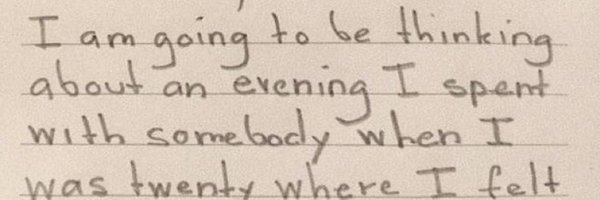 I am going to be thinking
about an evening I spent
with somebody when I
was twenty where I felt